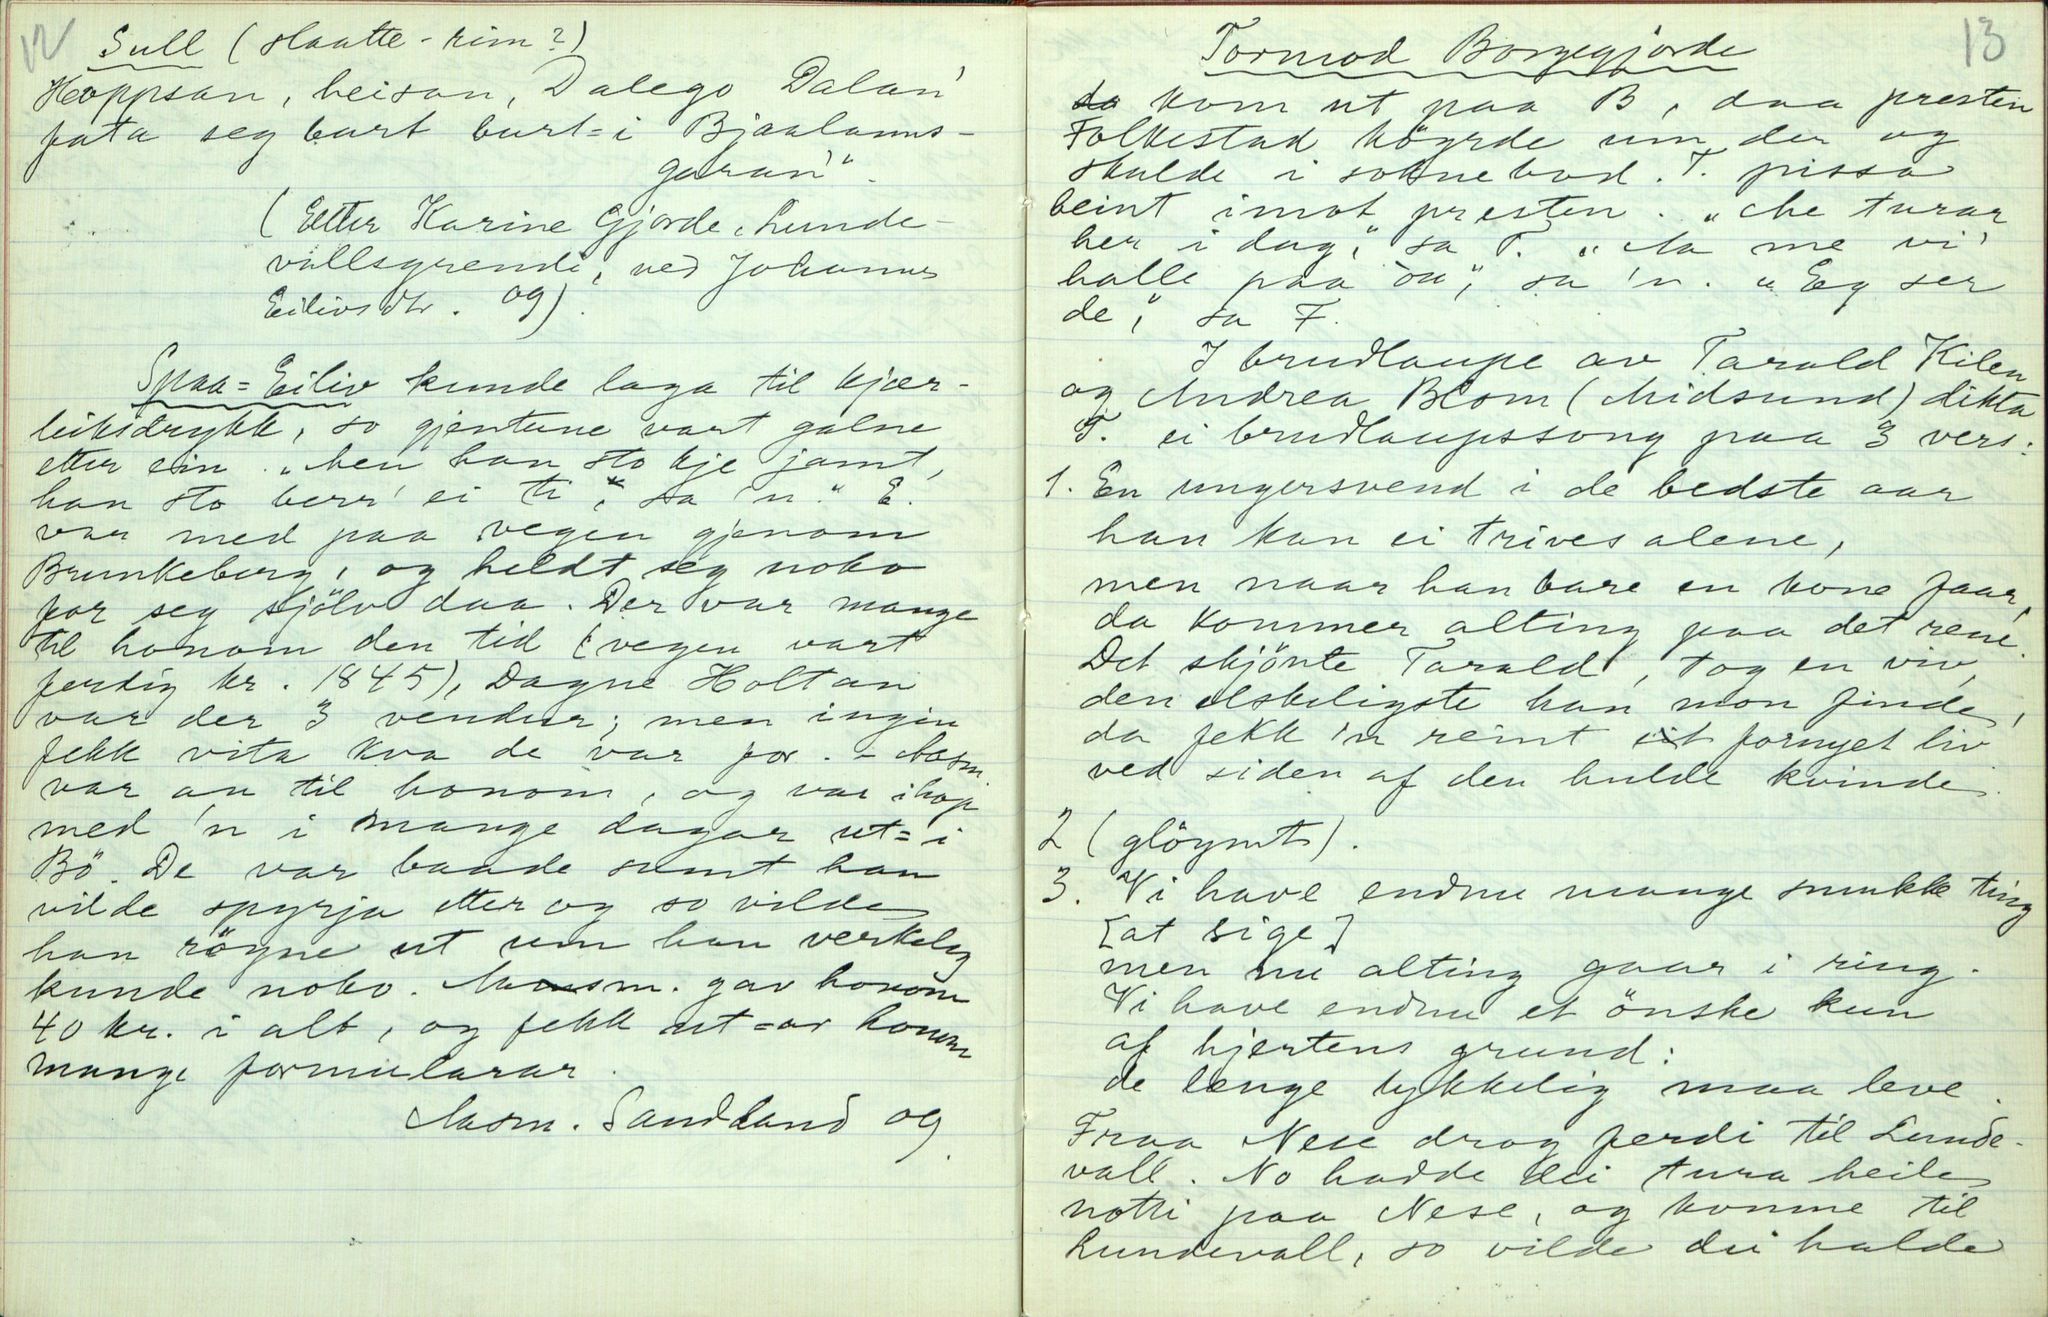 12
Sull (slaatte-rim?)
Hoppsan, heisan, Dalego Dalan'
fata seg burt burt-i Bjaalanns-
garan'".
(Etter Karine Gjorde, Lunde-
vallsgrendi, ved Johannes
Eilivsdtr. og).
Spaa-Eiliv kunde laga til kjær-
leiksdrykk, so gjentune vart galne
etter ein. "Men han sto kje jamt,
han sto berr' ei ti", sa 'n." E.
var med paa vegen gjenom
Brunkeberg, og heldt seg noko
for seg sjölv daa. Der var mange
til honom den tid (vegen vart
ferdig kr. 1845), Dagne Holtan
var der 3 vendur; men ingin
fekk vita kva de var for. - Aasm.
var an til honom, og var ihop
med 'n i mange dagar ut-i
Bö. De var baade sumt han
vilde spyrja etter og so vilde
han röyne ut um han verkeleg
kunde noko. Aasm. gav honom
40 kr. i alt, og fekk ut-av honom
mange formularar.
Aasm. Sandland og.
13
Tormod Borgegjorde
kom ut paa B, daa presten
Folkestad köyrde um der og
skulde i soknebod. T. pissa
beint imot presten. "Me turar
her i dag," sa T. "Aa me vi'
halle paa óu", sa 'n. "Eg ser
de," sa F.
I brudlaupe av Tarald Kilen
og Andrea Blom (Midsund) dikta
T. ei brudlaupssong paa 3 vers:
1. En ungersvend i de bedste aar
han kan ei trives alene,
men naar han bare en kone faar,
da kommer alting paa det rene.
Det skjönte Tarald, tog en viv,
den elskeligste han mon finde,
da fekk 'n reint eit fornyet liv
ved siden af den hulde kvinde.
2 (glöymt).
3. Vi have endnu mange smukke ting
[at sige]
men nu alting gaar i ring.
Vi have endnu et önske kun
af hjertens grund:
de længe lykkelig maa leve.
Fraa Nese drog ferdi til Lunde-
vall. No hadde dei tura heile
notti paa Nese, og komne til
Lundevall, so vilde dei halde